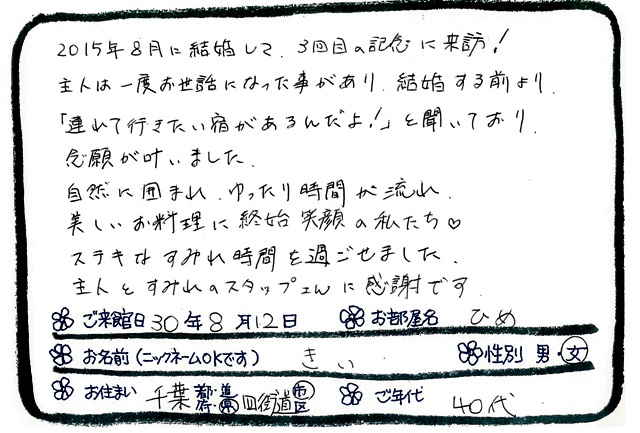 2015年8月に結婚して、3回目の記念に来訪!
主人は一度お世話になった事があり、結婚する前より、
「連れて行きたい宿があるんだよ!」と聞いており、
念願が叶いました。
自然に囲まれ、ゆったり時間が流れ、
美しいお料理に終始笑顔の私たち♡
ステキなすみれ時間を過ごせました。
主人とすみれのスタッフさんに感謝です。
ご来館日 30年8月12日 お部屋名 ひめ
お名前(ニックネームOKです) きぃ 性別 男・女
お住まい 千葉 都・道・府・県 四街道 市・区 ご年代 40代